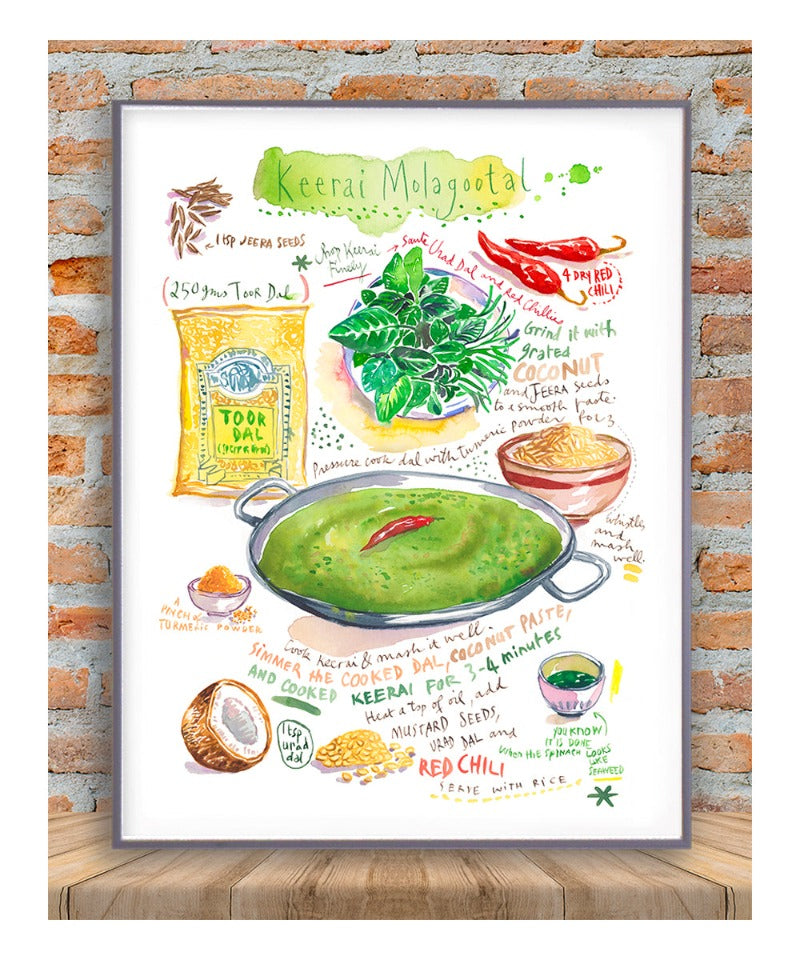 Keerai Molagootal
1 tsp JEERA SEEDS
Chop Keerai
Finely
Saute Urad Dal and Red Chillies
4 DRY RED
CHILI
(250 gms TOOR Dal)
Grind it with
grated
COCONUT
and JEERA seeds
to a smooth paste.
TOOR
DAL
Pressure cook dal with Turmeric powder for 3
whistles
and
mash
well.
A
PINCH OF
TURMERIC POWDER
Cook keerai & mash it well.
SIMMER THE COOKED DAL, COCONUT PASTE,
AND COOKED KEERAI FOR 3-4 minutes
Heat a tsp of oil, add
MUSTARD SEEDS,
URAD DAL and
RED CHILI
SERVE WITH RICE
1 tsp
urad
dal
YOU KNOW
IT IS DONE
when the SPINACH LOOKS
LIKE
SEAWEED